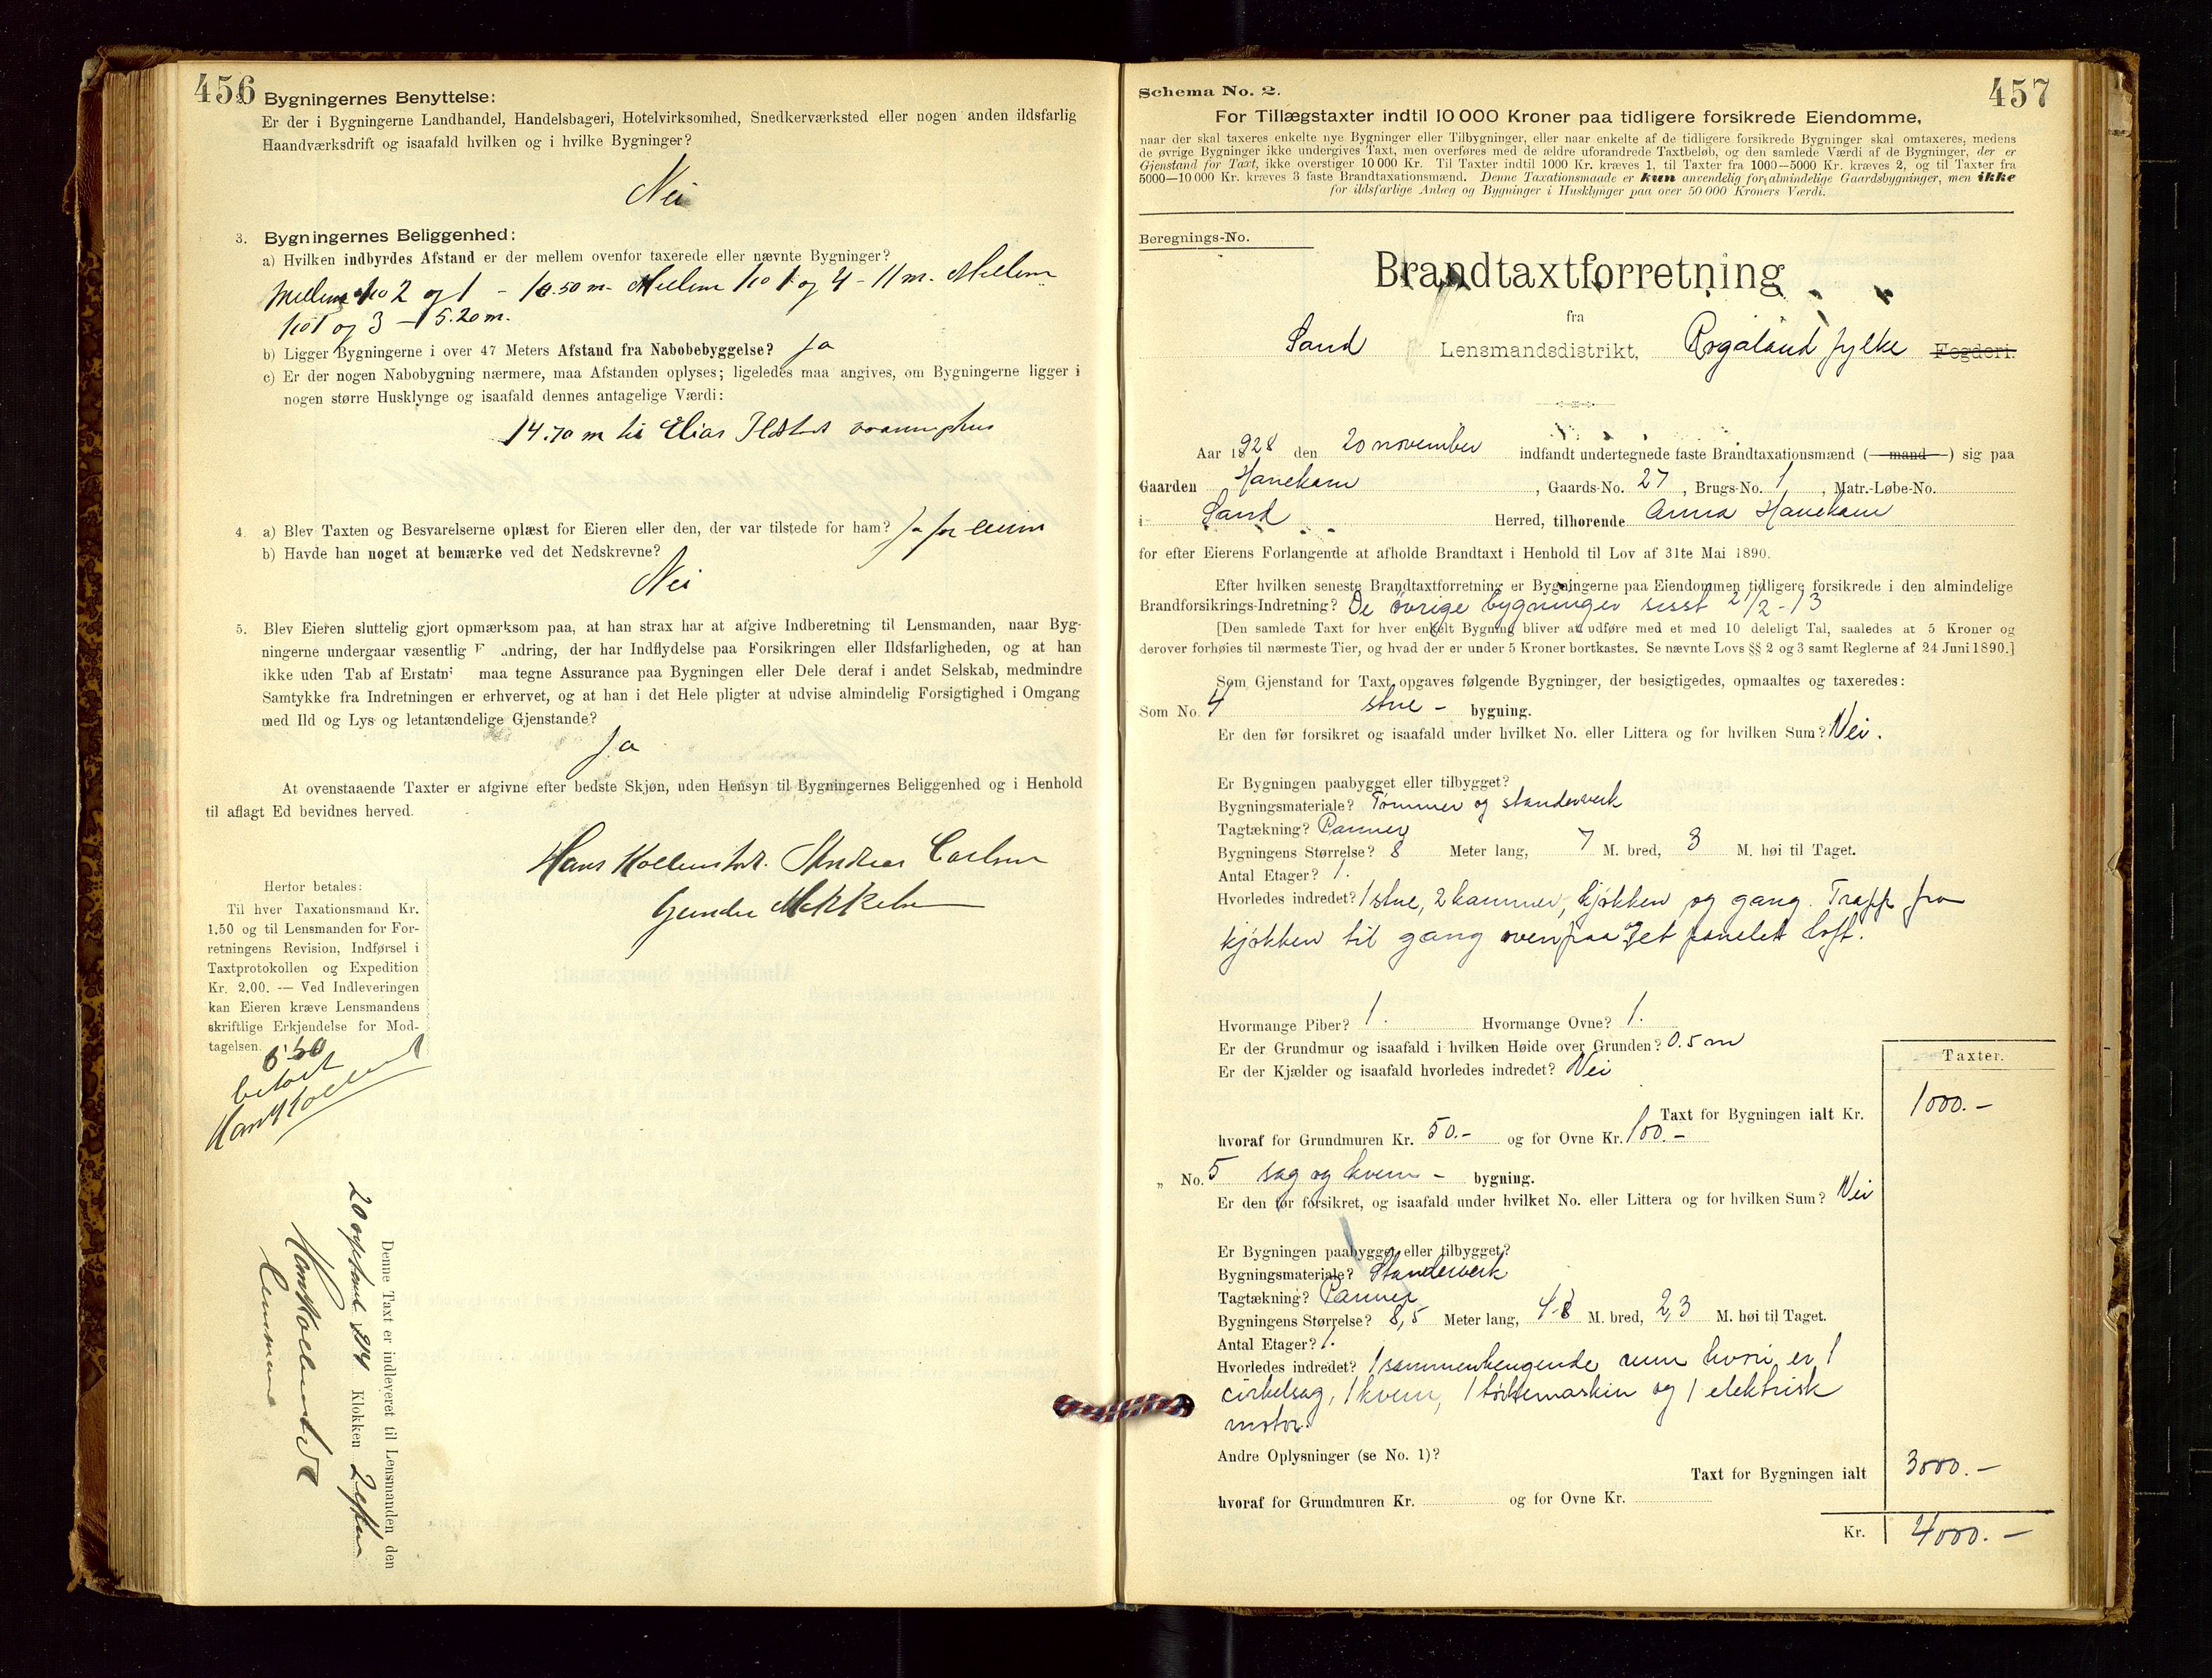 456
Bygningernes Benyttelse:
Er der i Bygningerne Landhandel, Handelsbageri, Hotelvirksomhed, Snedkerværksted eller nogen anden ildsfarlig
Haandværksdrift og isaafald hvilken og i hvilke Bygninger?
Nei
3. Bygningernes Beliggenhed:
a) Hvilken indbyrdes Afstand er der mellem ovenfor taxerede eller nævnte Bygninger?
Mellem No 2 og 1 - 10.50 m. Mellem No 1 og 4 - 11 m. Mellem
No 1 og 3 - 15.20 m.
b) Ligger Bygningerne i over 47 Meters Afstand fra Nabobebyggelse? Ja
c) Er der nogen Nabobygning nærmere, maa Afstanden oplyses; ligeledes maa angives, om Bygningerne ligger i
nogen større Husklynge og isaafald dennes antagelige Værdi:
14.70 m til Elias
4. a) Blev Taxten og Besvarelserne oplæst for Eieren eller den, der var tilstede for ham? Ja for eieren
b) Havde han noget at bemærke ved det Nedskrevne?
Nei
5. Blev Eieren sluttelig gjort opmærksom paa, at han strax har at afgive Indberetning til Lensmanden, naar Byg-
ningerne undergaar væsentlig F andring, der har Indflydelse paa Forsikringen eller Ildsfarligheden, og at han
ikke uden Tab af Erstatni maa tegne Assurance paa Bygningen eller Dele deraf i andet Selskab, medmindre
Samtykke fra Indretningen er erhvervet, og at han i det Hele pligter at udvise almindelig Forsigtighed i Omgang
med Ild og Lys og letantændelige Gjenstande?
Ja
At ovenstaaende Taxter er afgivne efter bedste Skjøn, uden Hensyn til Bygningernes Beliggenhed og i Henhold
til aflagt Ed bevidnes herved.
Hans Kollenstvedt. Andreas Carlsen
Gunder Mikkelsen
Herfor betales:
Til hver Taxationsmand Kr.
1.50 og til Lensmanden for For-
retningens Revision, Indførsel i
Taxtprotokollen og Expedition
Kr. 2.00. — Ved Indleveringen
kan Eieren kræve Lensmandens
skriftlige Erkjendelse for Mod-
tagelsen.
6.50
betalt
Denne Taxt er indleveret til Lensmanden den
20 Klokken 2
Lensmann
457
Schema No. 2.
For Tillægstaxter indtil 10 000 Kroner paa tidligere forsikrede Eiendomme,
naar der skal taxeres enkelte nye Bygninger eller Tilbygninger, eller naar enkelte af de tidligere forsikrede Bygninger skal omtaxeres, medens
de øvrige Bygninger ikke undergives Taxt, men overføres med de ældre uforandrede Taxtbeløb, og den samlede Værdi af de Bygninger, der er
Gjenstand for Taxt, ikke overstiger 10 000 Kr. Til Taxter indtil 1000 Kr. kræves 1, til Taxter fra 1000—5000 Kr. kræves 2, og til Taxter fra
5000—10 000 Kr. kræves 3 faste Brandtaxationsmænd. Denne Taxationsmaade er kun anvendelig for almindelige Gaardsbygninger, men ikke
for ildsfarlige Anlæg og Bygninger i Husklynger paa over 50 000 Kroners Værdi.
Beregnings-No.
Brandtaxtforretning
fra
Sand Lensmandsdistrikt, Rogaland fylke Fogderi.
Aar 1928 den 20 november indfandt undertegnede faste Brandtaxationsmænd (mand) sig paa
Gaarden Hanekam, Gaards-No. 27, Brugs-No. 1, Matr.-Løbe-No.
i Sand Herred, tilhørende Anna Hanekam
for efter Eierens Forlangende at afholde Brandtaxt i Henhold til Lov af 31te Mai 1890.
Efter hvilken seneste Brandtaxtforretning er Bygningerne paa Eiendommen tidligere forsikrede i den almindelige
Brandforsikrings-Indretning? De övrige bygninger sisst 21/2-13
[Den samlede Taxt for hver enkelt Bygning bliver at udføre med et med 10 deleligt Tal, saaledes at 5 Kroner og
derover forhøies til nærmeste Tier, og hvad der er under 5 Kroner bortkastes. Se nævnte Lovs §§ 2 og 3 samt Reglerne af 24 Juni 1890.]
Som Gjenstand for Taxt opgaves følgende Bygninger, der besigtigedes, opmaaltes og taxeredes:
Som No. 4 stue - bygning.
Er den før forsikret og isaafald under hvilket No. eller Littera og for hvilken Sum? Nei.
Er Bygningen paabygget eller tilbygget?
Bygningsmateriale? Tömmer og standerverk
Tagtækning? Panner
Bygningens Størrelse? 8 Meter lang, 7 M. bred, 3 M. høi til Taget.
Antal Etager? 1.
Hvorledes indredet? 1 stue, 2 kammer, kjökken og gang. Trapp fra
kjökken til gang ovenpaa og et panelet loft.
Hvormange Piber? 1. Hvormange Ovne? 1.
Er der Grundmur og isaafald i hvilken Høide over Grunden? 0.5 m
Er der Kjælder og isaafald hvorledes indredet? Nei
Taxter.
Taxt for Bygningen ialt Kr. 1000.-
hvoraf for Grundmuren Kr. 50.- og for Ovne Kr. 100.-
„ No. 5 sag og kvern - bygning.
Er den før forsikret, og isaafald under hvilket No. eller Littera og for hvilken Sum? Nei
Er Bygningen paabygget eller tilbygget?
Bygningsmateriale? Standerverk
Tagtækning? Panner
Bygningens Størrelse? 8,5 Meter lang, 4.8 M. bred, 2,3 M. høi til Taget.
Antal Etager? 1.
Hvorledes indredet? 1 sammenhengende rum hvori er 1
cirkelsag, 1 kvern, 1 törkemaskin og 1 elektrisk
motor.
Andre Oplysninger (se No. 1)?
Taxt for Bygningen ialt 3000.-
hvoraf for Grundmuren Kr. og for Ovne Kr.
Kr. 4000.-